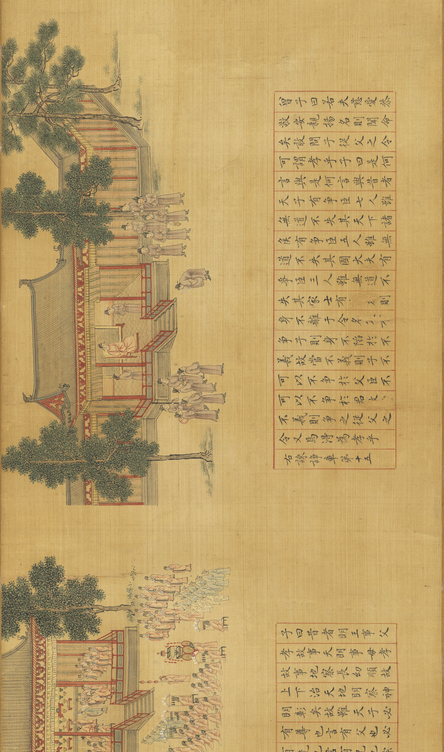 曾子曰若夫慈愛恭
敬安親揚名則聞命
矣敢問子從父之令
可謂孝乎子曰是何
言與是何言與昔者
天子有爭臣七人雖
無道不失其天下諸
侯有爭臣五人雖無
道不失其國大夫有
爭臣三人雖無道不
失其家士有則
身不離于令名
爭子則身不陷於不
義故當不義則子不
可以不爭於父臣不
可以不爭於君
不義則爭之從父之
令又焉得為孝乎
右諫諍章第十五
子曰昔者明王事父
孝故事天明事母孝
故事地察長幼順故
上下治天地明察神
明彰矣故雖天子必
有尊也言有父也必